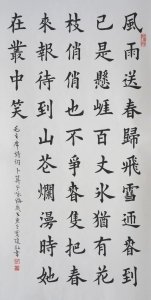 風雨送春歸飛雪迎春到
已是懸崖百丈冰猶有花
枝俏俏也不爭春隻把春
來報待到山花爛漫時她
在叢中笑
毛主席詩詞卜算子詠梅